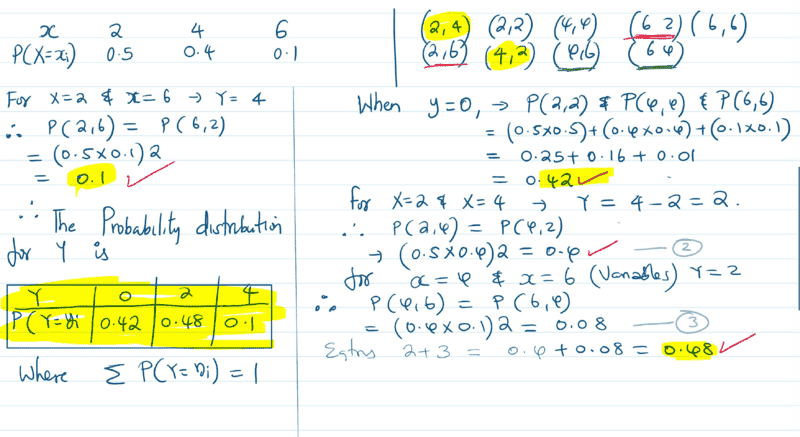 x 2 4 6
P(X=xi) 0.5 0.4 0.1
For X=2 & x=6 → Y= 4
∴ P(2,6) = P(6,2)
= (0.5×0.1)2
= 0.1 ✓
∴ The Probability distribution
for Y is
Y 0 2 4
P(Y=yi 0.42 0.48 0.1
Where Σ P(Y=yi) = 1
(2,4) (2,2) (4,4) (6 2) (6,6)
(2,6) (4,2) (4,6) (6 4)
When y=0, → P(2,2) & P(4,4) & P(6,6)
= (0.5×0.5)+(0.4×0.4)+(0.1×0.1)
= 0.25+0.16+0.01
= 0.42 ✓
For X=2 & X=4 → Y = 4-2=2.
∴ P(2,4) = P(4,2)
→ (0.5×0.4)2 = 0.4 ✓ — ②
for x=4 & x=6 (Variables) Y=2
∴ P(4,6) = P(6,4)
= (0.4×0.1)2 = 0.08 — ③
Eqtns 2+3 = 0.4+0.08 = 0.48 ✓